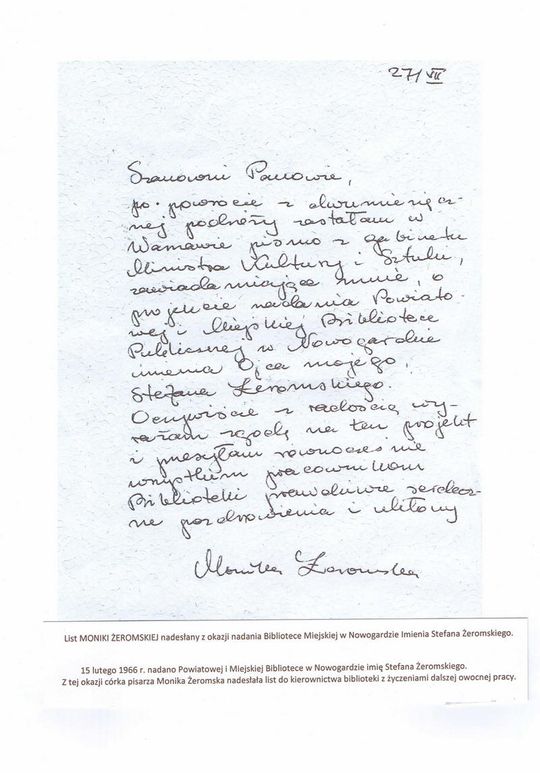 27/VII
Szanowni Panowie,
po powrocie z dwumiesięcz-
nej podróży zastałam w
Warszawie pismo z gabinetu
Ministra Kultury i Sztuki,
zawiadamiające mnie, o
projekcie nadania Powiato-
wej i Miejskiej Bibliotece
Publicznej w Nowogardzie
imienia Ojca mojego,
Stefana Żeromskiego.
Oczywiście z radością wy-
rażam zgodę na ten projekt
i przesyłam równocześnie
wszystkim pracownikom
Biblioteki prawdziwie serdecz-
ne pozdrowienia i ukłony
Monika Żeromska
List MONIKI ŻEROMSKIEJ nadesłany z okazji nadania Bibliotece Miejskiej w Nowogardzie Imienia Stefana Żeromskiego.
15 lutego 1966 r. nadano Powiatowej i Miejskiej Bibliotece w Nowogardzie imię Stefana Żeromskiego.
Z tej okazji córka pisarza Monika Żeromska nadesłała list do kierownictwa biblioteki z życzeniami dalszej owocnej pracy.